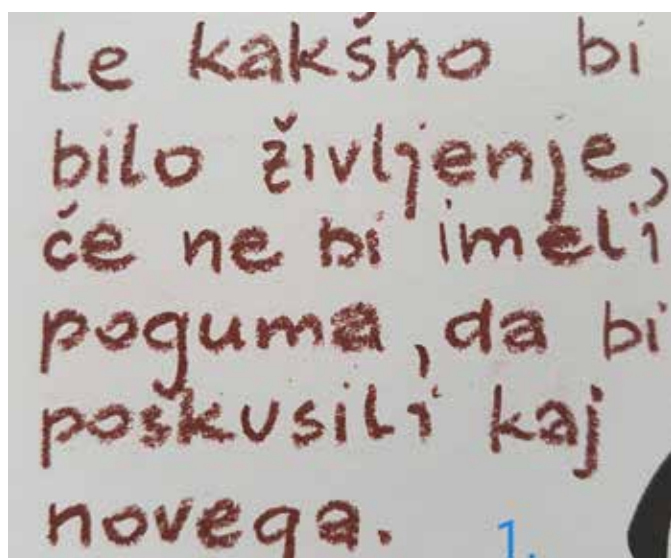 Le kakšno bi
bilo življenje,
če ne bi imeli
poguma, da bi
poskusili kaj
novega.
1.